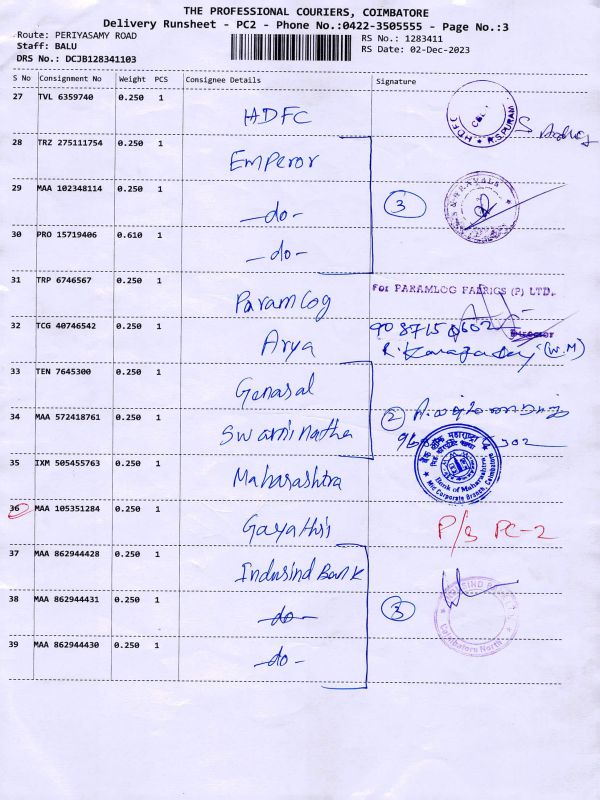 THE PROFESSIONAL COURIERS, COIMBATORE
Delivery Runsheet - PC2 - Phone No.:0422-3505555 - Page No.:3
Route: PERIYASAMY ROAD
RS No.: 1283411
Staff: BALU
RS Date: 02-Dec-2023
DRS No.: DCJB128341103
S No Consignment No Weight PCS Consignee Details Signature
27 TVL 6359740 0.250 1 HDFC
HDFC R.S.PURAM
28 TRZ 275111754 0.250 1 Emperor
29 MAA 102348114 0.250 1 -do- 3
30 PRO 15719406 0.610 1 -do-
31 TRP 6746567 0.250 1 Paramlog
For PARAMLOG FABRICS (P) LTD.
Director
32 TCG 40746542 0.250 1 Arya
(W.M)
33 TEN 7645300 0.250 1 Genasal
34 MAA 572418761 0.250 1 Swaminatha 2
35 IXM 505455763 0.250 1 Maharashtra
Bank of Maharashtra
Mid Corporate Branch, Coimbatore
36 MAA 105351284 0.250 1 Gayathri P/s PC-2
37 MAA 862944428 0.250 1 Indusind Bank
38 MAA 862944431 0.250 1 -do- 3
Coimbatore North
39 MAA 862944430 0.250 1 -do-